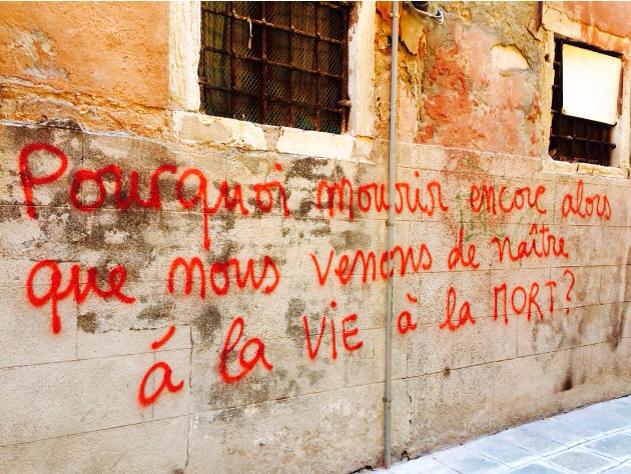 Pourquoi mourir encore alors
que nous venons de naître
á la VIE à la MORT?